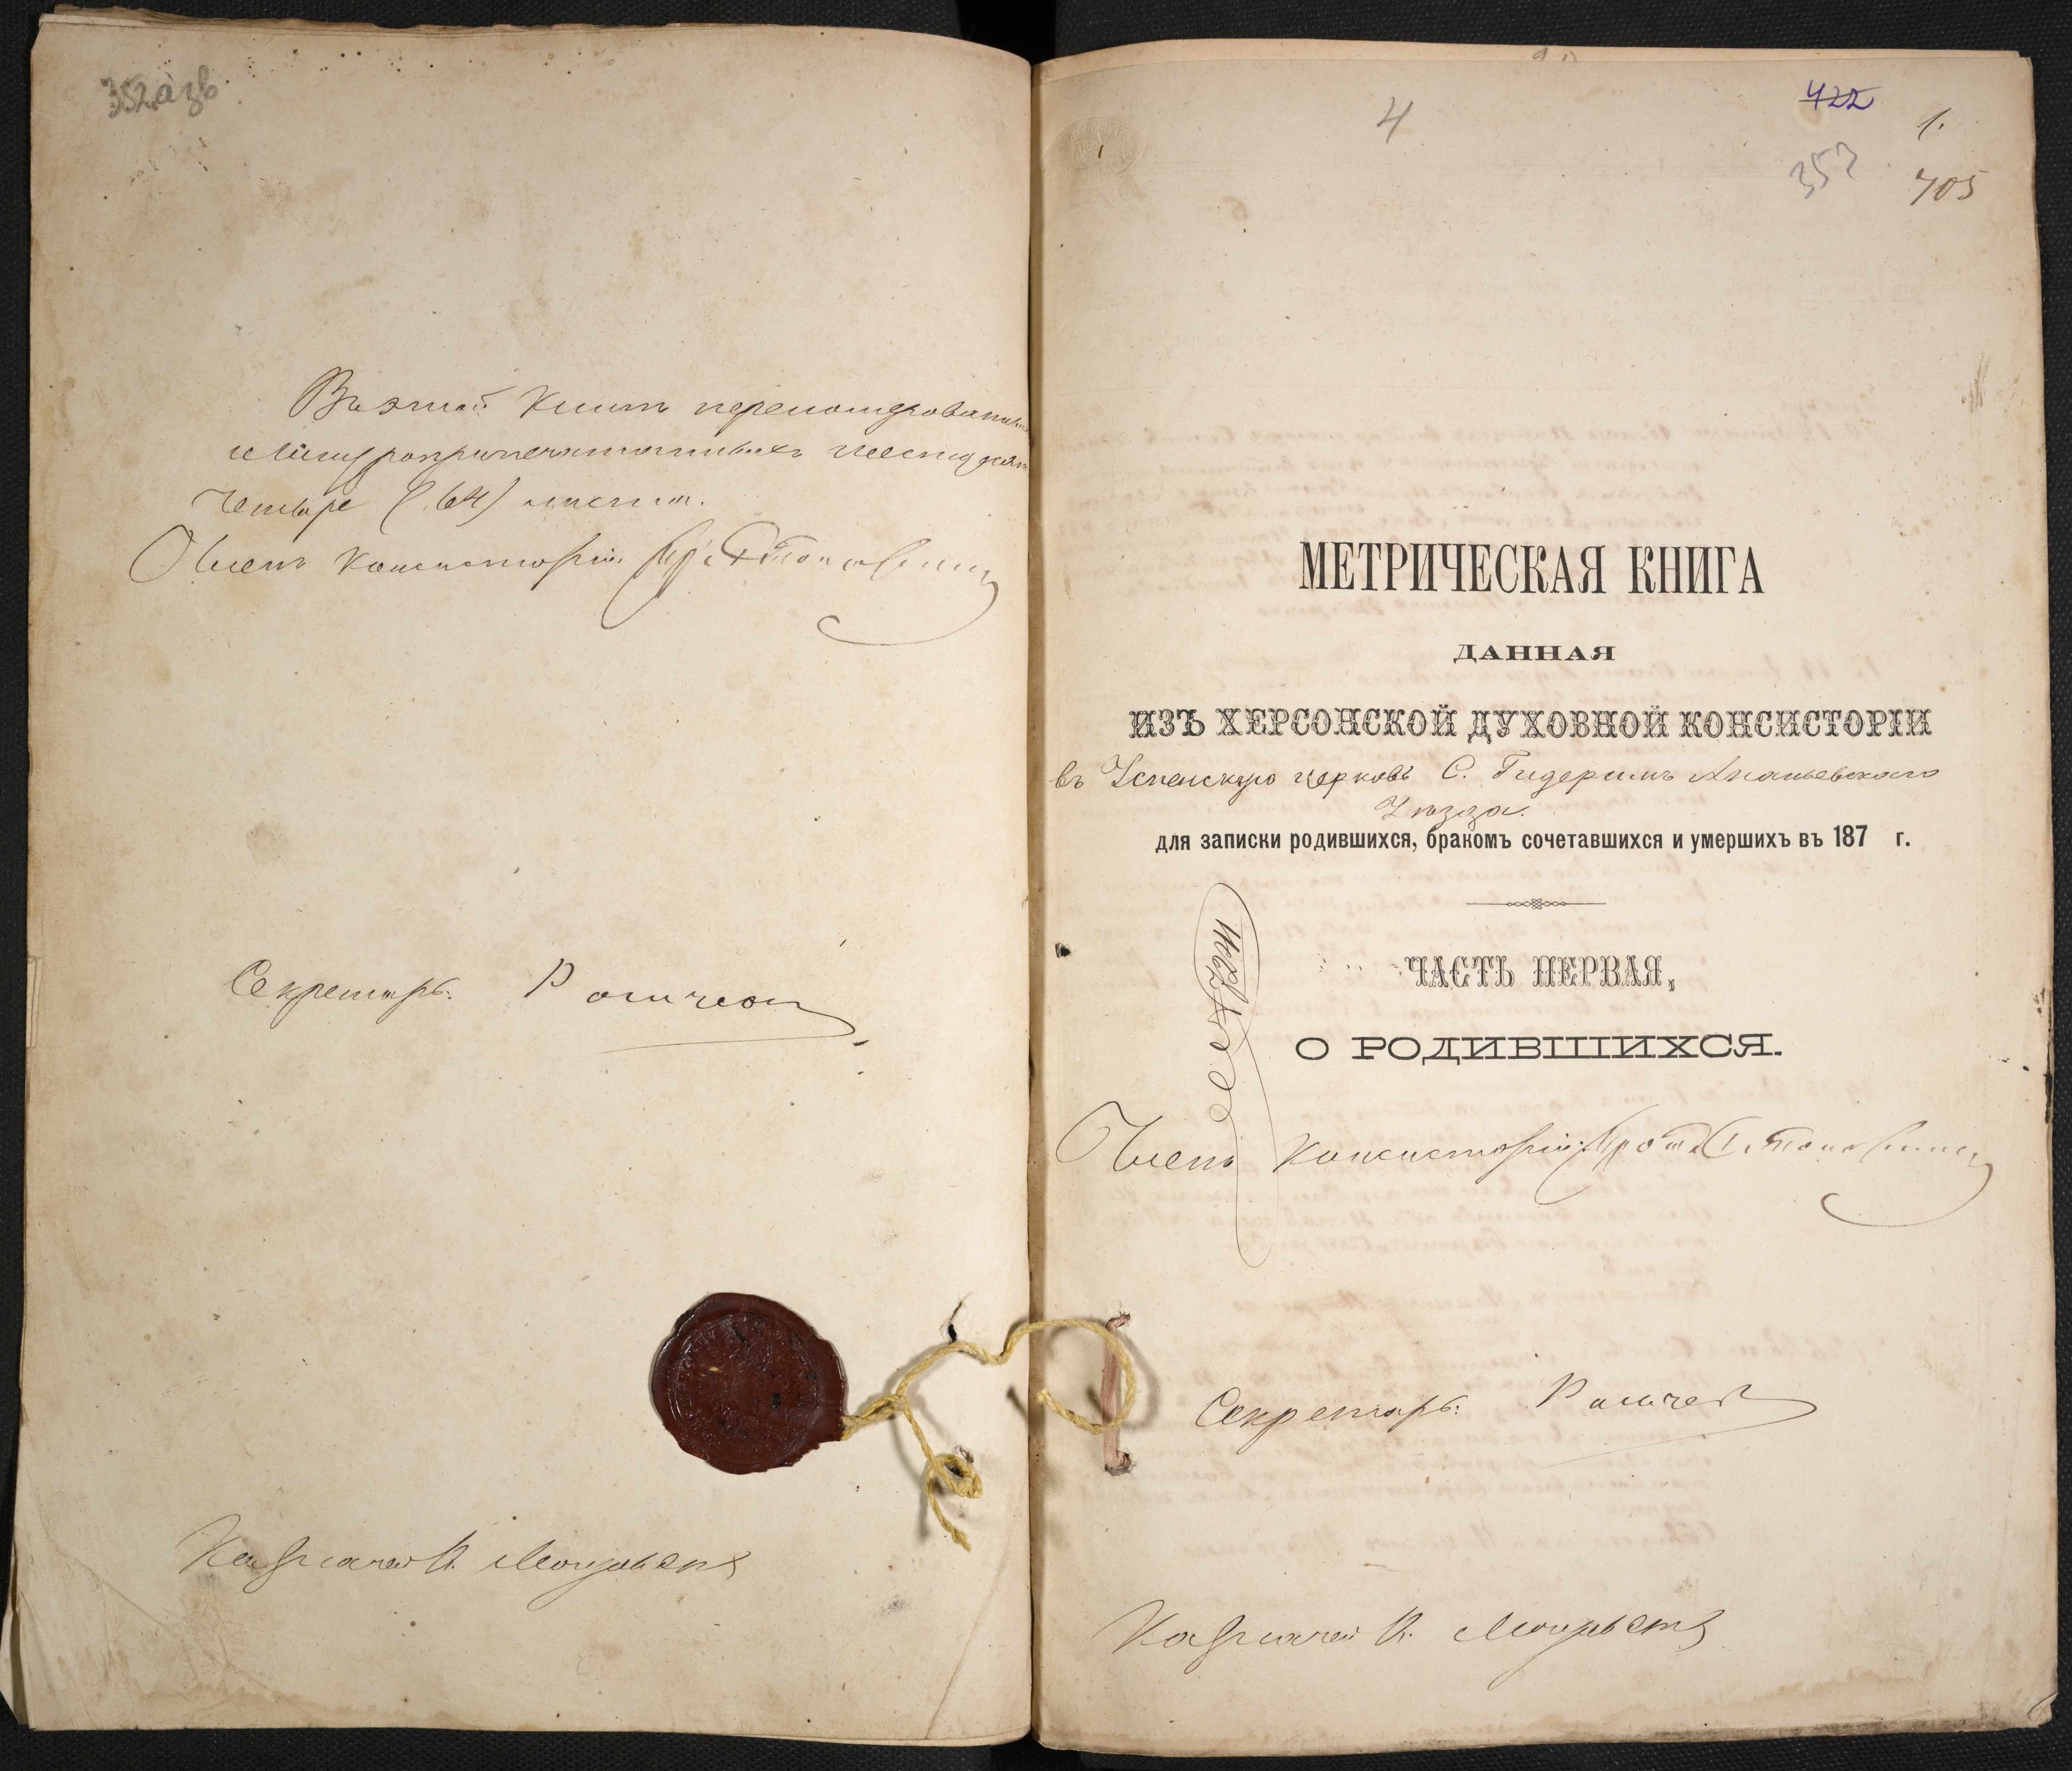 352 а зв
Въ этой книгѣ перенумерованныхъ
и шнуроприпечатанныхъ шестьдесят
четыре (64) листа.
Членъ Консисторіи
Секретарь
Казначей
4
422
1.
353
705
МЕТРИЧЕСКАЯ КНИГА
ДАННАЯ
ИЗЪ ХЕРСОНСКОЙ ДУХОВНОЙ КОНСИСТОРІИ
въ Успенскую церковь С. Гидеримъ Ананьевскаго
Уѣзда.
для записки родившихся, бракомъ сочетавшихся и умершихъ въ 187 г.
ЧАСТЬ ПЕРВАЯ,
О РОДИВШИХСЯ.
Членъ Консисторіи
Секретарь
Казначей